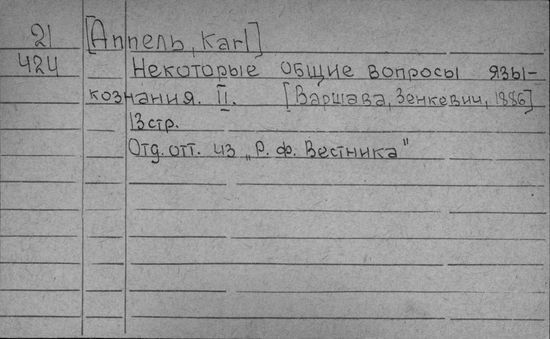 21 [Аппель, Karl]
424 Некоторые общие вопросы язы-
кознания. II. [Варшава, Зенкевич, 1886]
13 стр.
Отд. отт. из „Р. ф. Вестника"